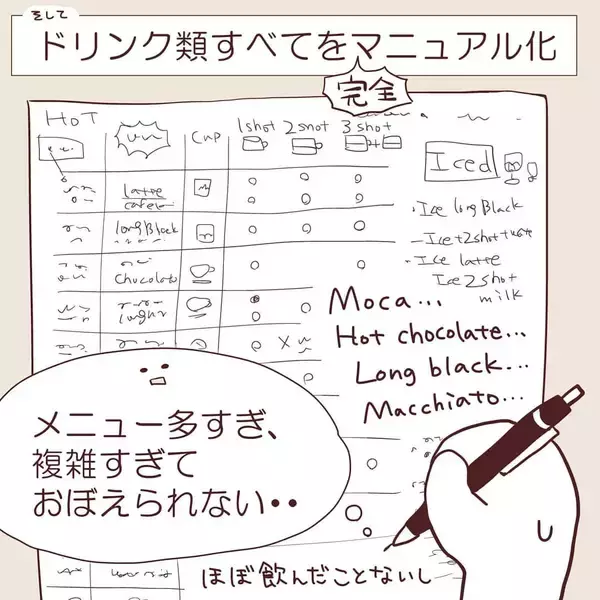 そして
ドリンク類すべてをマニュアル化
完全
HOT
Cup
1shot 2shot 3shot
Iced
latte
cafe
long Black
chocolate
Ice long Black
Ice+2shot+
Ice latte
Ice 2shot
milk
Moca...
Hot chocolate...
Long black...
Macchiato...
メニュー多すぎ、
複雑すぎて
おぼえられない・・
ほぼ飲んだことないし